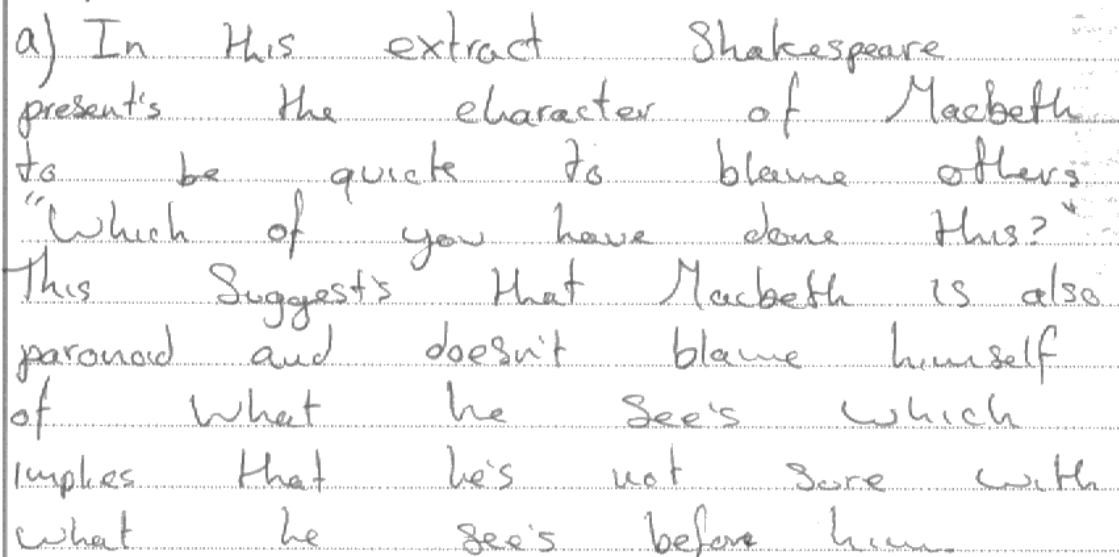 a) In this extract Shakespeare
present's the character of Macbeth
to be quick to blame others
"Which of you have done this?"
This Suggest's that Macbeth is also
paronoid and doesn't blame himself
of what he see's which
implies that he's not sure with
what he see's before him